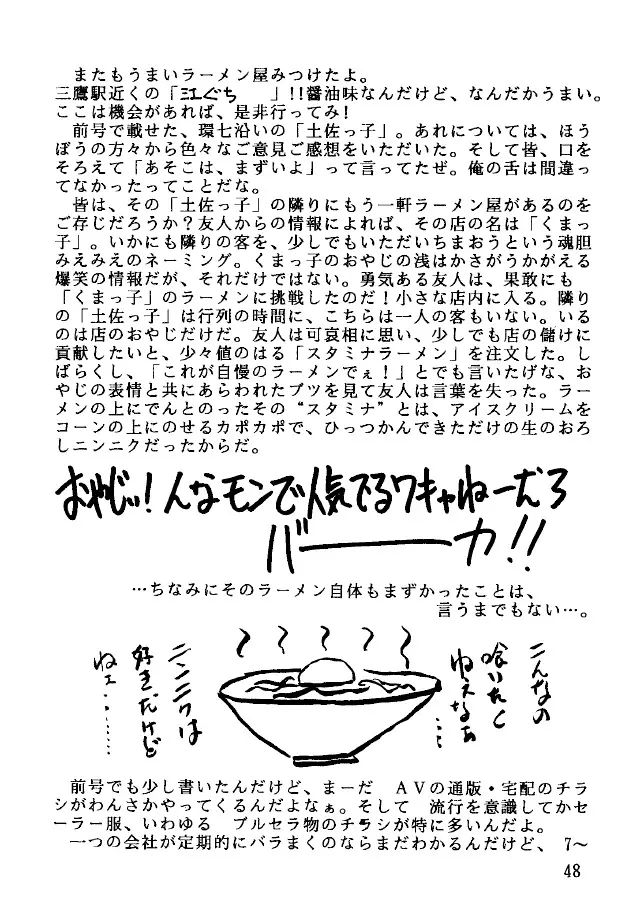 またもうまいラーメン屋みつけたよ。
三鷹駅近くの「江ぐち　　」!!醤油味なんだけど、なんだかうまい。
ここは機会があれば、是非行ってみ!
前号で載せた、環七沿いの「土佐っ子」。あれについては、ほう
ぼうの方々から色々なご意見ご感想をいただいた。そして皆、口を
そろえて「あそこは、まずいよ」って言ってたぜ。俺の舌は間違っ
てなかったってことだな。
皆は、その「土佐っ子」の隣りにもう一軒ラーメン屋があるのを
ご存じだろうか?友人からの情報によれば、その店の名は「くまっ
子」。いかにも隣りの客を、少しでもいただいちまおうという魂胆
みえみえのネーミング。くまっ子のおやじの浅はかさがうかがえる
爆笑の情報だが、それだけではない。勇気ある友人は、果敢にも
「くまっ子」のラーメンに挑戦したのだ!小さな店内に入る。隣り
の「土佐っ子」は行列の時間に、こちらは一人の客もいない。いる
のは店のおやじだけだ。友人は可哀相に思い、少しでも店の儲けに
貢献したいと、少々値のはる「スタミナラーメン」を注文した。し
ばらくし、「これが自慢のラーメンでぇ!」とでも言いたげな、お
やじの表情と共にあらわれたブツを見て友人は言葉を失った。ラー
メンの上にでんとのったその“スタミナ”とは、アイスクリームを
コーンの上にのせるカポカポで、ひっつかんできただけの生のおろ
しニンニクだったからだ。
おやじッ!んなモンで人気でるワキャねーだろ
バーーーカ!!
…ちなみにそのラーメン自体もまずかったことは、
言うまでもない…。
こんなの
喰いたく
ねぇなぁ…
ニンニクは
好きだけど
ねェ………
前号でも少し書いたんだけど、まーだ　ＡＶの通販・宅配のチラ
シがわんさかやってくるんだよなぁ。そして　流行を意識してかセ
ーラー服、いわゆる　ブルセラ物のチラシが特に多いんだよ。
一つの会社が定期的にバラまくのならまだわかるんだけど、7～
48